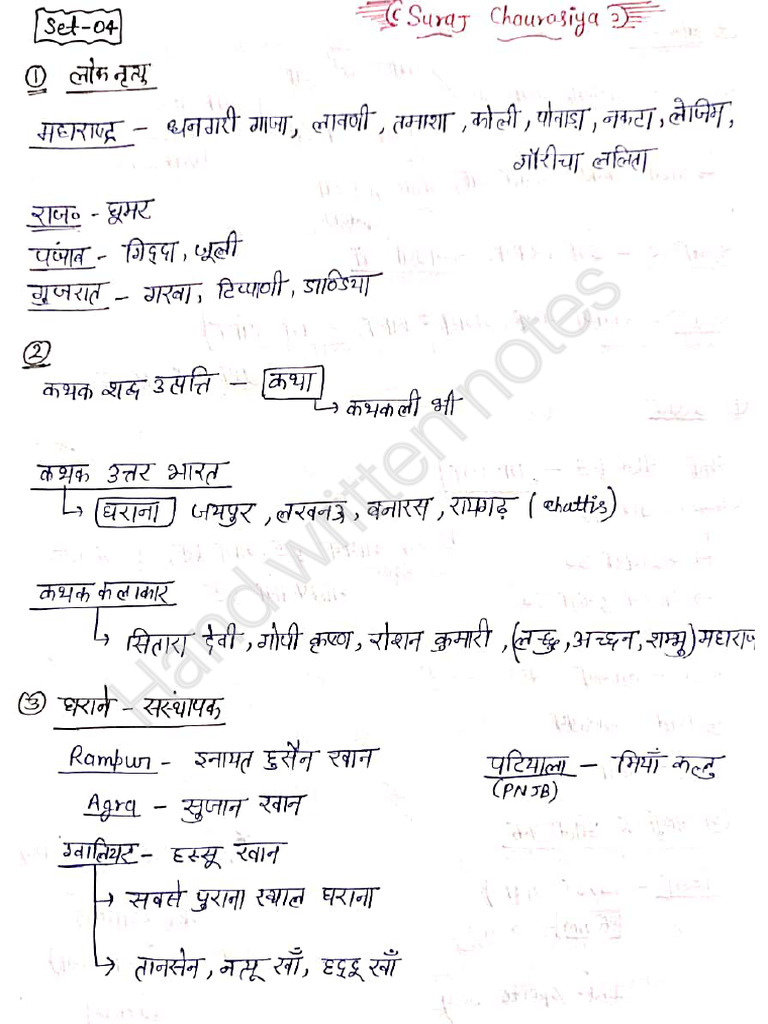 Set-04
(( Suraj Chourasiya ))
① लोक नृत्य
महाराष्ट्र – धनगरी गाजा, लावणी, तमाशा, कोली, पोवाडा, नकटा, लेजिम,
गौरीचा ललिता
राज० - घूमर
पंजाब - गिद्दा, जूली
गुजरात – गरबा, टिप्पाणी, डाण्डिया
②
कथक शब्द उत्पत्ति – कथा
↳ कथकली भी
कथक उत्तर भारत
↳ घराना जयपुर, लखनऊ, बनारस, रायगढ़ (chattis)
कथक कलाकार
↳ सितारा देवी, गोपी कृष्ण, रोशन कुमारी, (लच्छु, अच्छन, शम्भु) महाराज
③ घराने – संस्थापक
Rampur – इनायत हुसैन खान
पटियाला – मियाँ कल्लु
(PNJB)
Agra – सुजान खान
ग्वालियर – हस्सू खान
→ सबसे पुराना ख्याल घराना
→ तानसेन, नत्थू खाँ, हद्दू खाँ
Hand written notes